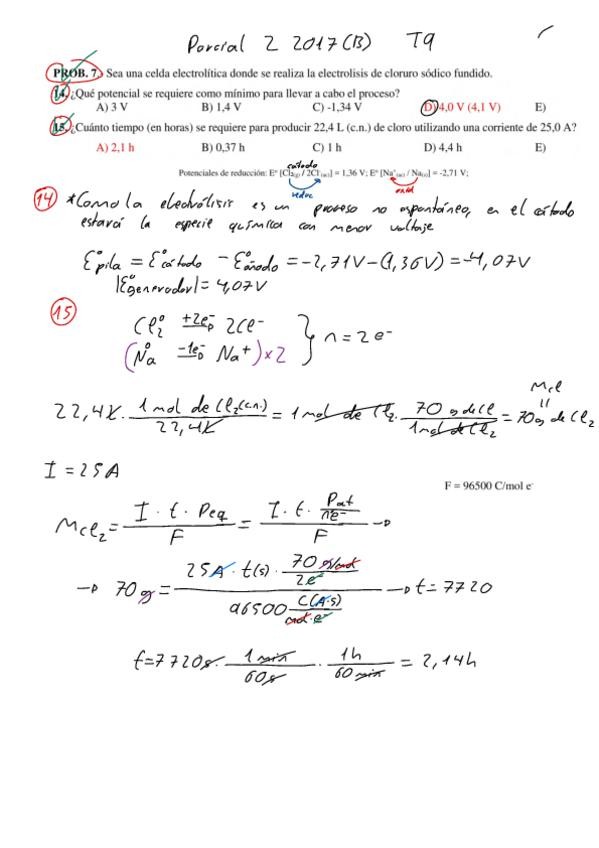 Parcial 2 2017(B) T9
PROB. 7. Sea una celda electrolítica donde se realiza la electrolisis de cloruro sódico fundido.
14. ¿Qué potencial se requiere como mínimo para llevar a cabo el proceso?
A) 3 V B) 1,4 V C) -1,34 V D) 4,0 V (4,1 V) E)
15. ¿Cuánto tiempo (en horas) se requiere para producir 22,4 L (c.n.) de cloro utilizando una corriente de 25,0 A?
A) 2,1 h B) 0,37 h C) 1 h D) 4,4 h E)
cátodo
Potenciales de reducción: Eº [Cl₂(g) / 2Cl⁻(ac)] = 1,36 V; Eº [Na⁺(ac) / Na(s)] = -2,71 V;
reduc oxid
14 *Como la electrólisis es un proceso no espontáneo, en el cátodo
estará la especie química con menor voltaje
Ɛ°pila = Ɛ°cátodo - Ɛ°ánodo = -2,71V-(1,36V) = -4,07V
|Ɛ°generador| = 4,07V
15
Cl₂⁰ +2e⁻→ 2Cl⁻
(Na⁰ -1e⁻→ Na⁺)x2 } n = 2e⁻
Mcl
22,4L · 1 mol de Cl₂(c.n.) / 22,4L = 1 mol de Cl₂ · 70 g de Cl / 1 mol de Cl₂ = 70g de Cl₂
I = 25A
F = 96500 C/mol e⁻
mCl₂ = I · t · Peq / F = I · t · Pat/ne⁻ / F →
→ 70g = 25A · t(s) · 70 g/mol / 2e⁻ / 96500 C(A·s) / mol·e⁻ → t = 7720
t=7720s · 1 min / 60s · 1h / 60 min = 2,14h